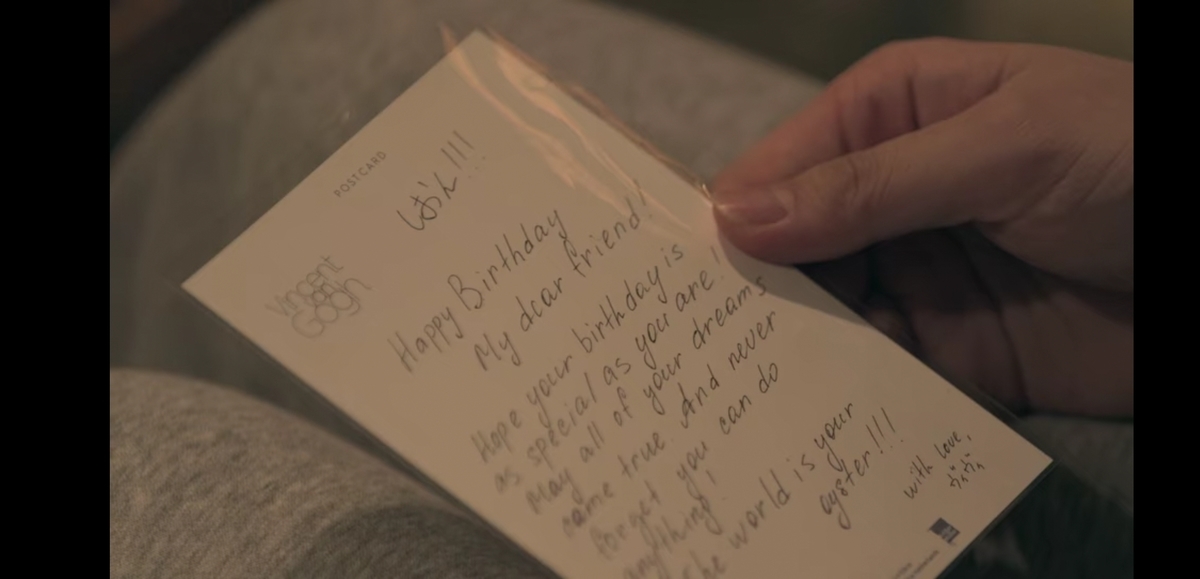 POSTCARD
Vincent
van
Gogh
Happy Birthday
My dear friend!
Hope your birthday is
as special as you are!
May all of your dreams
came true. And never
forget you can do
anything!
he world is your
oyster!!!
with love,